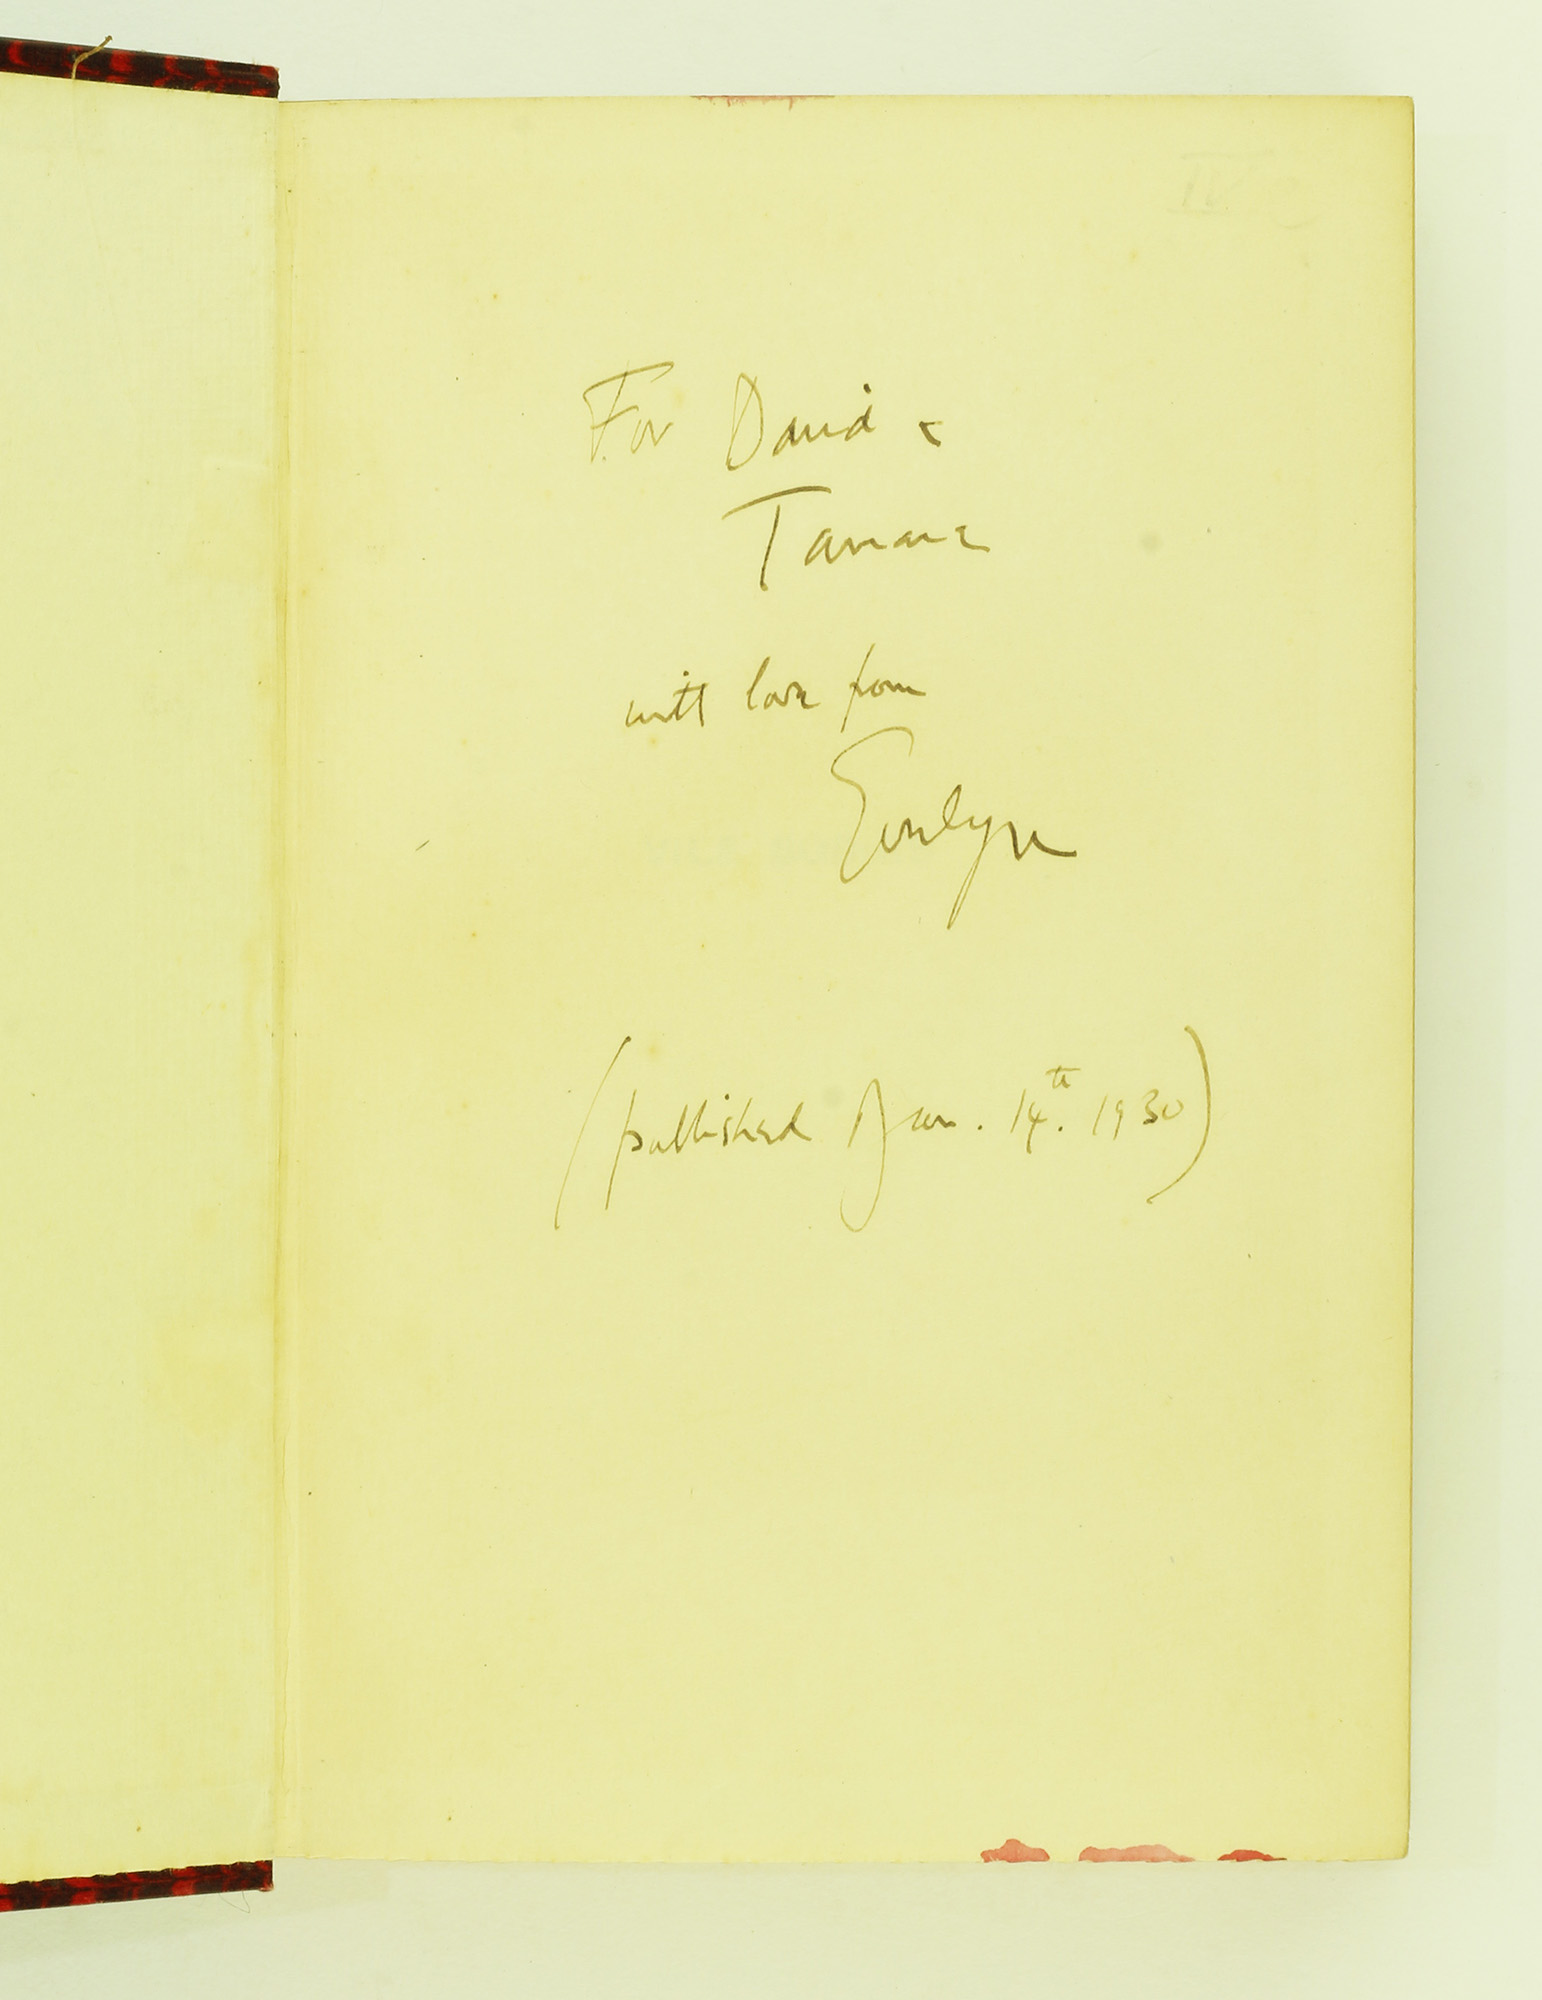 For David &
Tamara
with love from
Evelyn
(published Jan. 14th. 1930)